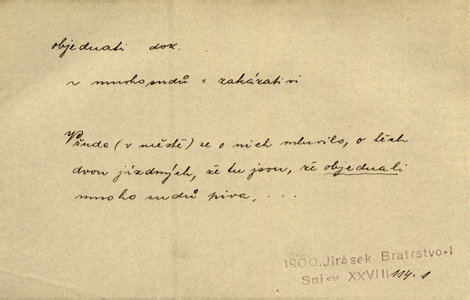 objednati dok.
~ mnoho sudů = zakázati si
Všude (v městě) se o nich mluvilo, o těch
dvou jízdných, že tu jsou, že objednali
mnoho sudů piva, . . .
1900. Jirásek Bratrstvo-I
Spisy XXVIII 114.1